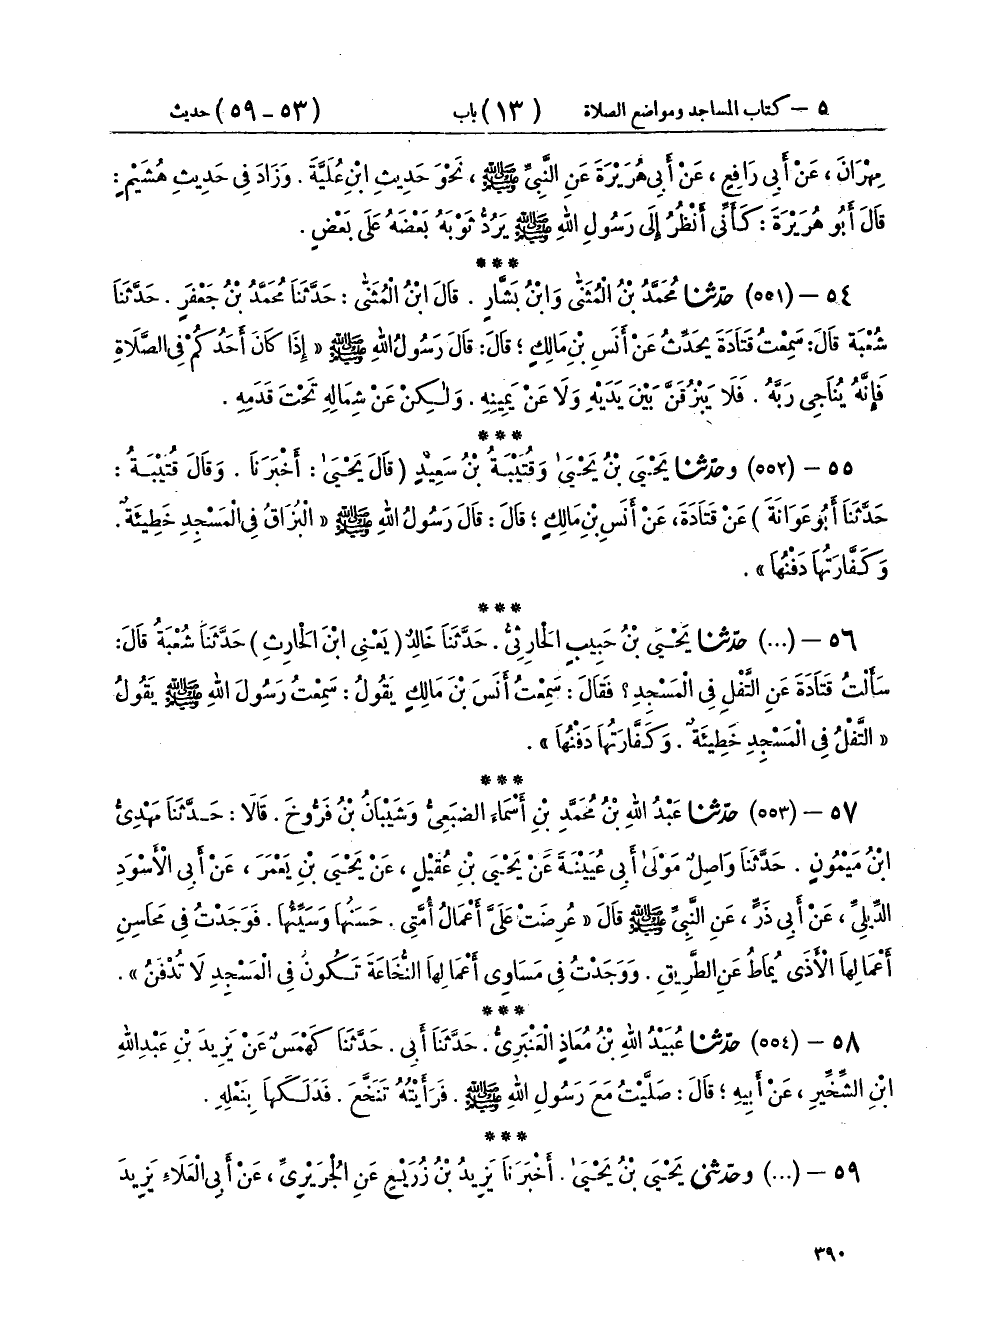 ٥ – كتاب المساجد ومواضع الصلاة (١٣) باب (٥٣ – ٥٩) حديث
مِهْرَانَ، عَنْ أَبِي رَافِعٍ، عَنْ أَبِي هُرَيْرَةَ عَنِ النَّبِيِّ ﷺ، نَحْوَ حَدِيثِ ابْنِ عُلَيَّةَ. وَزَادَ فِي حَدِيثِ هُشَيْمٍ:
قَالَ أَبُو هُرَيْرَةَ: كَأَنِّي أَنْظُرُ إِلَى رَسُولِ اللهِ ﷺ يَرُدُّ ثَوْبَهُ بَعْضَهُ عَلَى بَعْضٍ.
***
٥٤ – (٥٥١) حَدَّثَنَا مُحَمَّدُ بْنُ الْمُثَنَّى وَابْنُ بَشَّارٍ. قَالَ ابْنُ الْمُثَنَّى: حَدَّثَنَا مُحَمَّدُ بْنُ جَعْفَرٍ. حَدَّثَنَا
شُعْبَةُ قَالَ: سَمِعْتُ قَتَادَةَ يُحَدِّثُ عَنْ أَنَسِ بْنِ مَالِكٍ؛ قَالَ: قَالَ رَسُولُ اللهِ ﷺ «إِذَا كَانَ أَحَدُكُمْ فِي الصَّلَاةِ
فَإِنَّهُ يُنَاجِي رَبَّهُ. فَلَا يَبْزُقَنَّ بَيْنَ يَدَيْهِ وَلَا عَنْ يَمِينِهِ. وَلٰكِنْ عَنْ شِمَالِهِ تَحْتَ قَدَمِهِ.
***
٥٥ – (٥٥٢) وحَدَّثَنَا يَحْيَىٰ بْنُ يَحْيَىٰ وَقُتَيْبَةُ بْنُ سَعِيدٍ (قَالَ يَحْيَىٰ: أَخْبَرَنَا. وَقَالَ قُتَيْبَةُ:
حَدَّثَنَا أَبُو عَوَانَةَ) عَنْ قَتَادَةَ، عَنْ أَنَسِ بْنِ مَالِكٍ؛ قَالَ: قَالَ رَسُولُ اللهِ ﷺ «الْبُزَاقُ فِي الْمَسْجِدِ خَطِيئَةٌ.
وَكَفَّارَتُهَا دَفْنُهَا».
***
٥٦ – (...) حَدَّثَنَا يَحْيَىٰ بْنُ حَبِيبٍ الْحَارِثِيُّ. حَدَّثَنَا خَالِدٌ (يَعْنِي ابْنَ الْحَارِثِ) حَدَّثَنَا شُعْبَةُ قَالَ:
سَأَلْتُ قَتَادَةَ عَنِ التَّفْلِ فِي الْمَسْجِدِ؟ فَقَالَ: سَمِعْتُ أَنَسَ بْنَ مَالِكٍ يَقُولُ: سَمِعْتُ رَسُولَ اللهِ ﷺ يَقُولُ
«التَّفْلُ فِي الْمَسْجِدِ خَطِيئَةٌ. وَكَفَّارَتُهَا دَفْنُهَا».
***
٥٧ – (٥٥٣) حَدَّثَنَا عَبْدُ اللهِ بْنُ مُحَمَّدِ بْنِ أَسْمَاءَ الضُّبَعِيُّ وَشَيْبَانُ بْنُ فَرُّوخَ. قَالَا: حَدَّثَنَا مَهْدِيُّ
ابْنُ مَيْمُونٍ. حَدَّثَنَا وَاصِلٌ مَوْلَىٰ أَبِي عُيَيْنَةَ عَنْ يَحْيَىٰ بْنِ عُقَيْلٍ، عَنْ يَحْيَىٰ بْنِ يَعْمَرَ، عَنْ أَبِي الْأَسْوَدِ
الدِّيلِيِّ، عَنْ أَبِي ذَرٍّ، عَنِ النَّبِيِّ ﷺ قَالَ «عُرِضَتْ عَلَيَّ أَعْمَالُ أُمَّتِي. حَسَنُهَا وَسَيِّئُهَا. فَوَجَدْتُ فِي مَحَاسِنِ
أَعْمَالِهَا الْأَذَى يُمَاطُ عَنِ الطَّرِيقِ. وَوَجَدْتُ فِي مَسَاوِي أَعْمَالِهَا النُّخَاعَةَ تَكُونُ فِي الْمَسْجِدِ لَا تُدْفَنُ».
***
٥٨ – (٥٥٤) حَدَّثَنَا عُبَيْدُ اللهِ بْنُ مُعَاذٍ الْعَنْبَرِيُّ. حَدَّثَنَا أَبِي. حَدَّثَنَا كَهْمَسٌ عَنْ يَزِيدَ بْنِ عَبْدِ اللهِ
ابْنِ الشِّخِّيرِ، عَنْ أَبِيهِ؛ قَالَ: صَلَّيْتُ مَعَ رَسُولِ اللهِ ﷺ. فَرَأَيْتُهُ تَنَخَّعَ. فَدَلَكَهَا بِنَعْلِهِ.
***
٥٩ – (...) وحَدَّثَنِي يَحْيَىٰ بْنُ يَحْيَىٰ. أَخْبَرَنَا يَزِيدُ بْنُ زُرَيْعٍ عَنِ الْجُرَيْرِيِّ، عَنْ أَبِي الْعَلَاءِ يَزِيدَ
٣٩٠